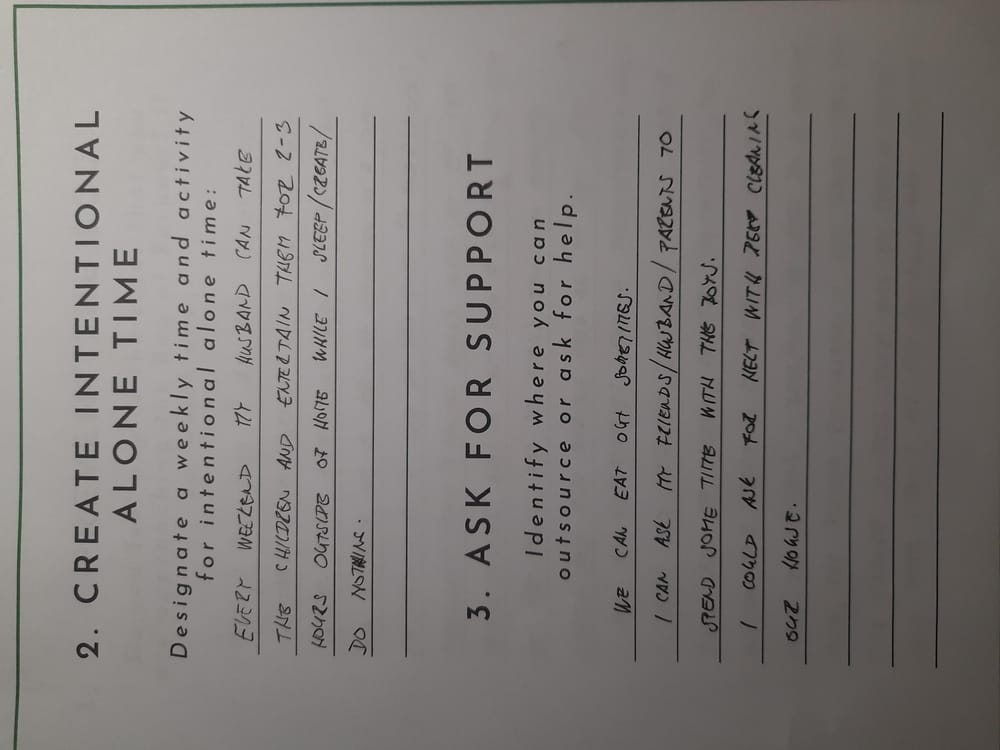 2. CREATE INTENTIONAL
ALONE TIME
Designate a weekly time and activity
for intentional alone time:
EVERY WEEKEND MY HUSBAND CAN TAKE
THE CHILDREN AND ENTERTAIN THEM FOR 2-3
HOURS OUTSIDE OF HOME WHILE I SLEEP/CREATE/
DO NOTHING.
3. ASK FOR SUPPORT
Identify where you can
outsource or ask for help.
WE CAN EAT OUT SOMETIMES.
I CAN ASK MY FRIENDS/HUSBAND/PARENTS TO
SPEND SOME TIME WITH THE BOYS.
I COULD ASK FOR HELP WITH DEEP CLEANING
OUR HOUSE.